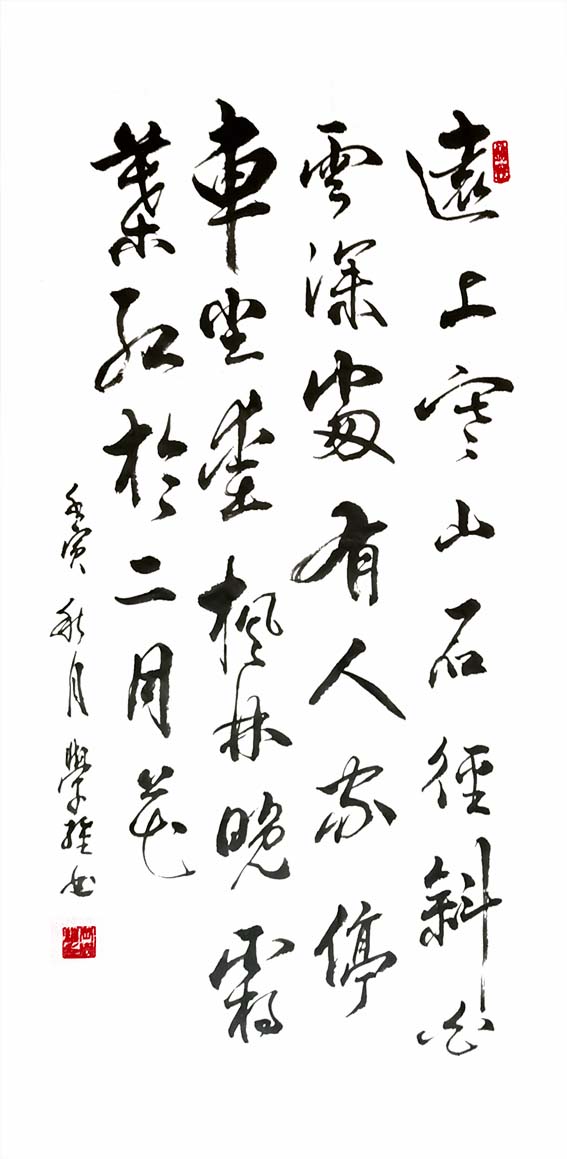 遠上寒山石徑斜白
雲深處有人家停
車坐愛楓林晚霜
葉紅於二月花
壬寅秋月學書